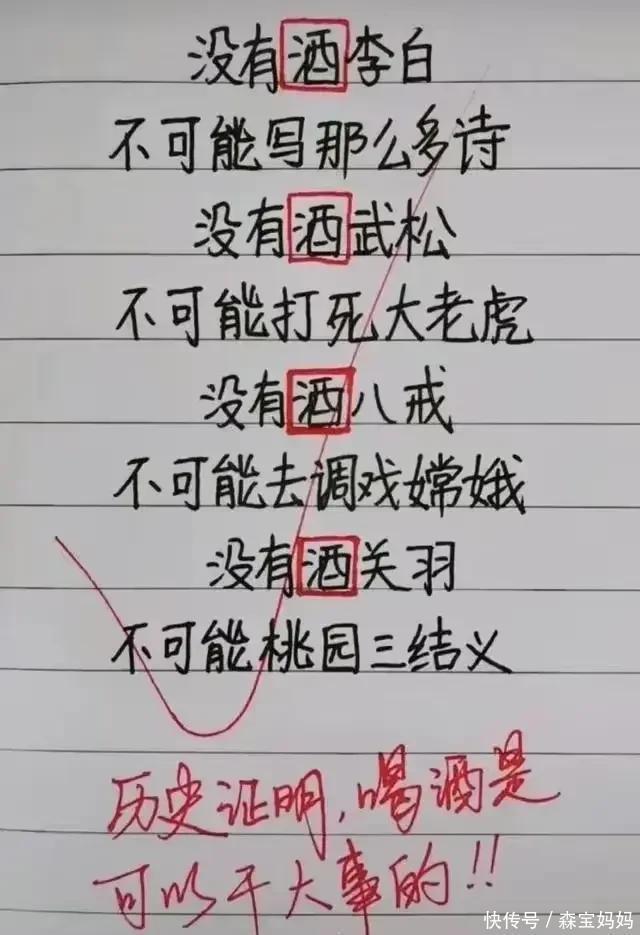 没有酒李白
不可能写那么多诗
没有酒武松
不可能打死大老虎
没有酒八戒
不可能去调戏嫦娥
没有酒关羽
不可能桃园三结义
历史证明,喝酒是
可以干大事的!!
快传号/森宝妈妈